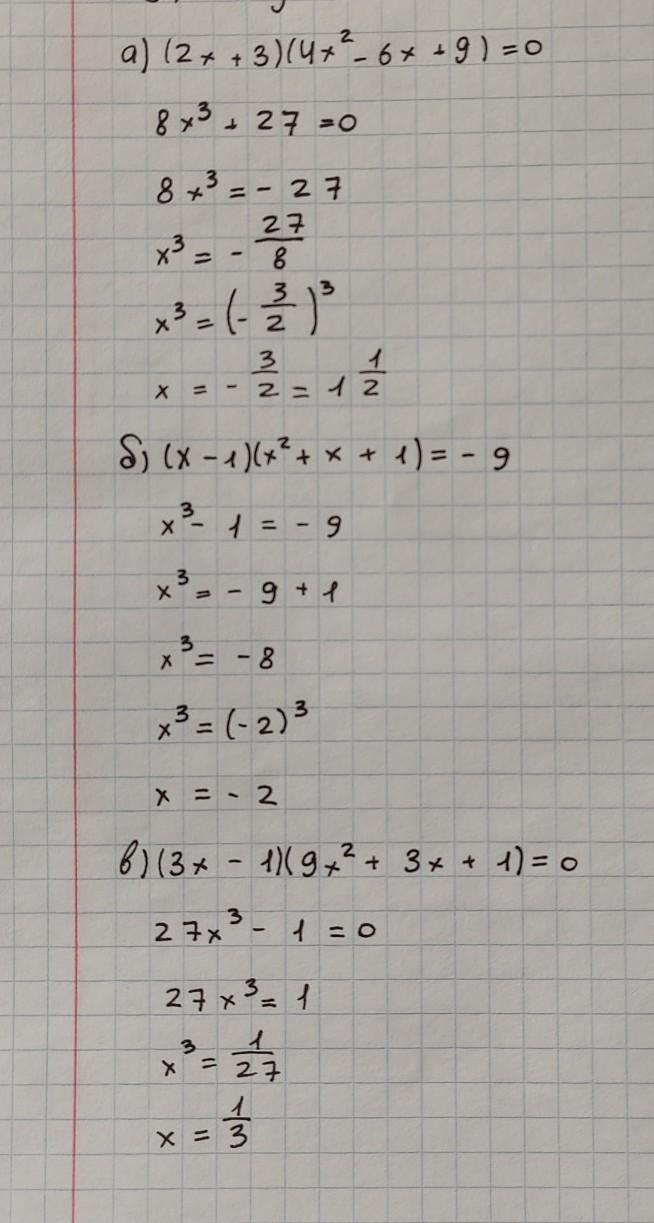 а) (2x + 3)(4x² - 6x + 9) = 0
8x³ + 27 = 0
8x³ = - 27
x³ = - 27/8
x³ = (- 3/2)³
x = - 3/2 = 1 1/2
б) (x - 1)(x² + x + 1) = - 9
x³ - 1 = - 9
x³ = - 9 + 1
x³ = - 8
x³ = (- 2)³
x = - 2
в) (3x - 1)(9x² + 3x + 1) = 0
27x³ - 1 = 0
27x³ = 1
x³ = 1/27
x = 1/3